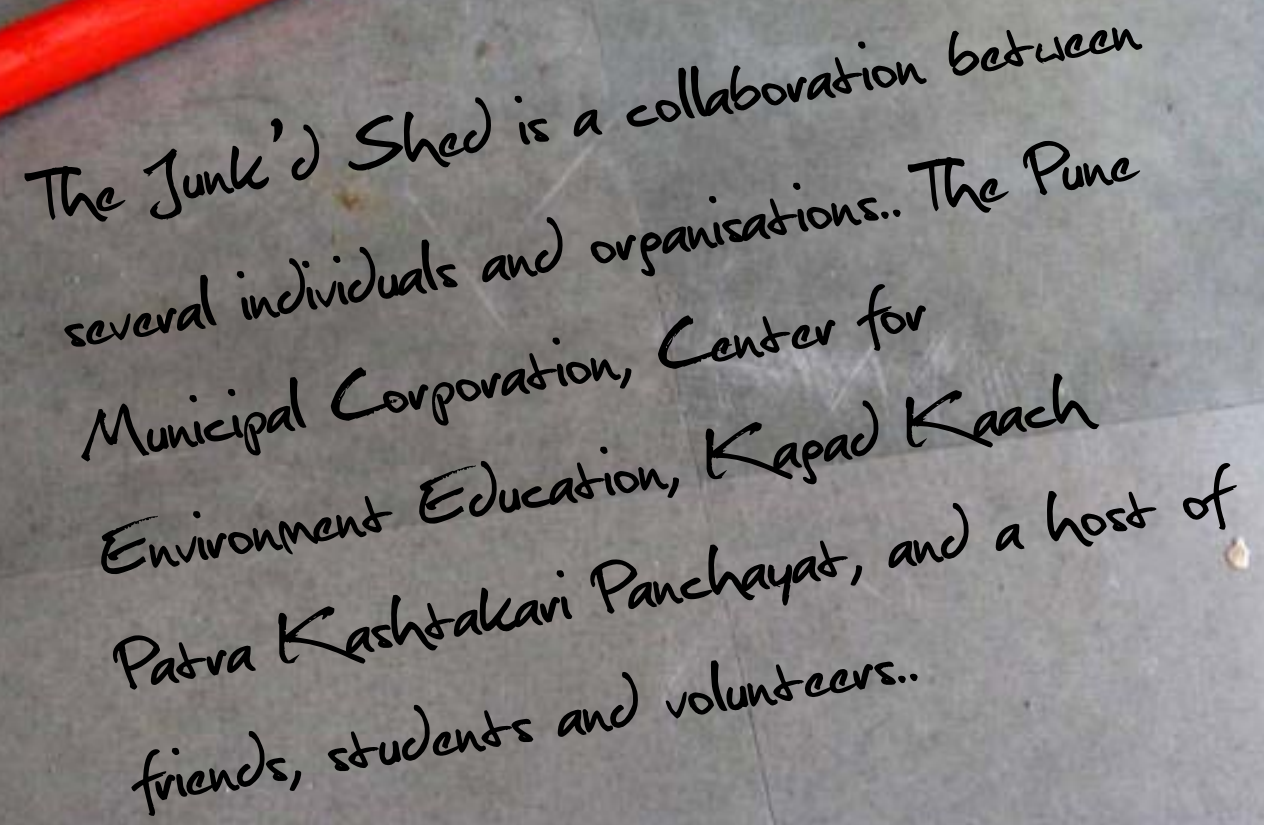 The Junk'd Shed is a collaboration between
several individuals and organisations.. The Pune
Municipal Corporation, Center for
Environment Education, Kagad Kaach
Patra Kashtakari Panchayat, and a host of
friends, students and volunteers..